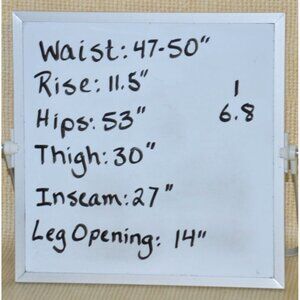 Waist: 47-50"
Rise: 11.5"
Hips: 53"
Thigh: 30"
Inseam: 27"
Leg Opening: 14"
1
6.8